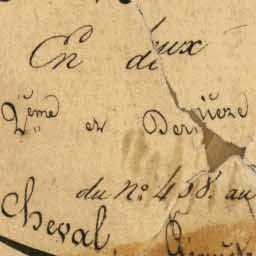 En deux
2.eme et Derniere
du N.º 458. au
Cheval